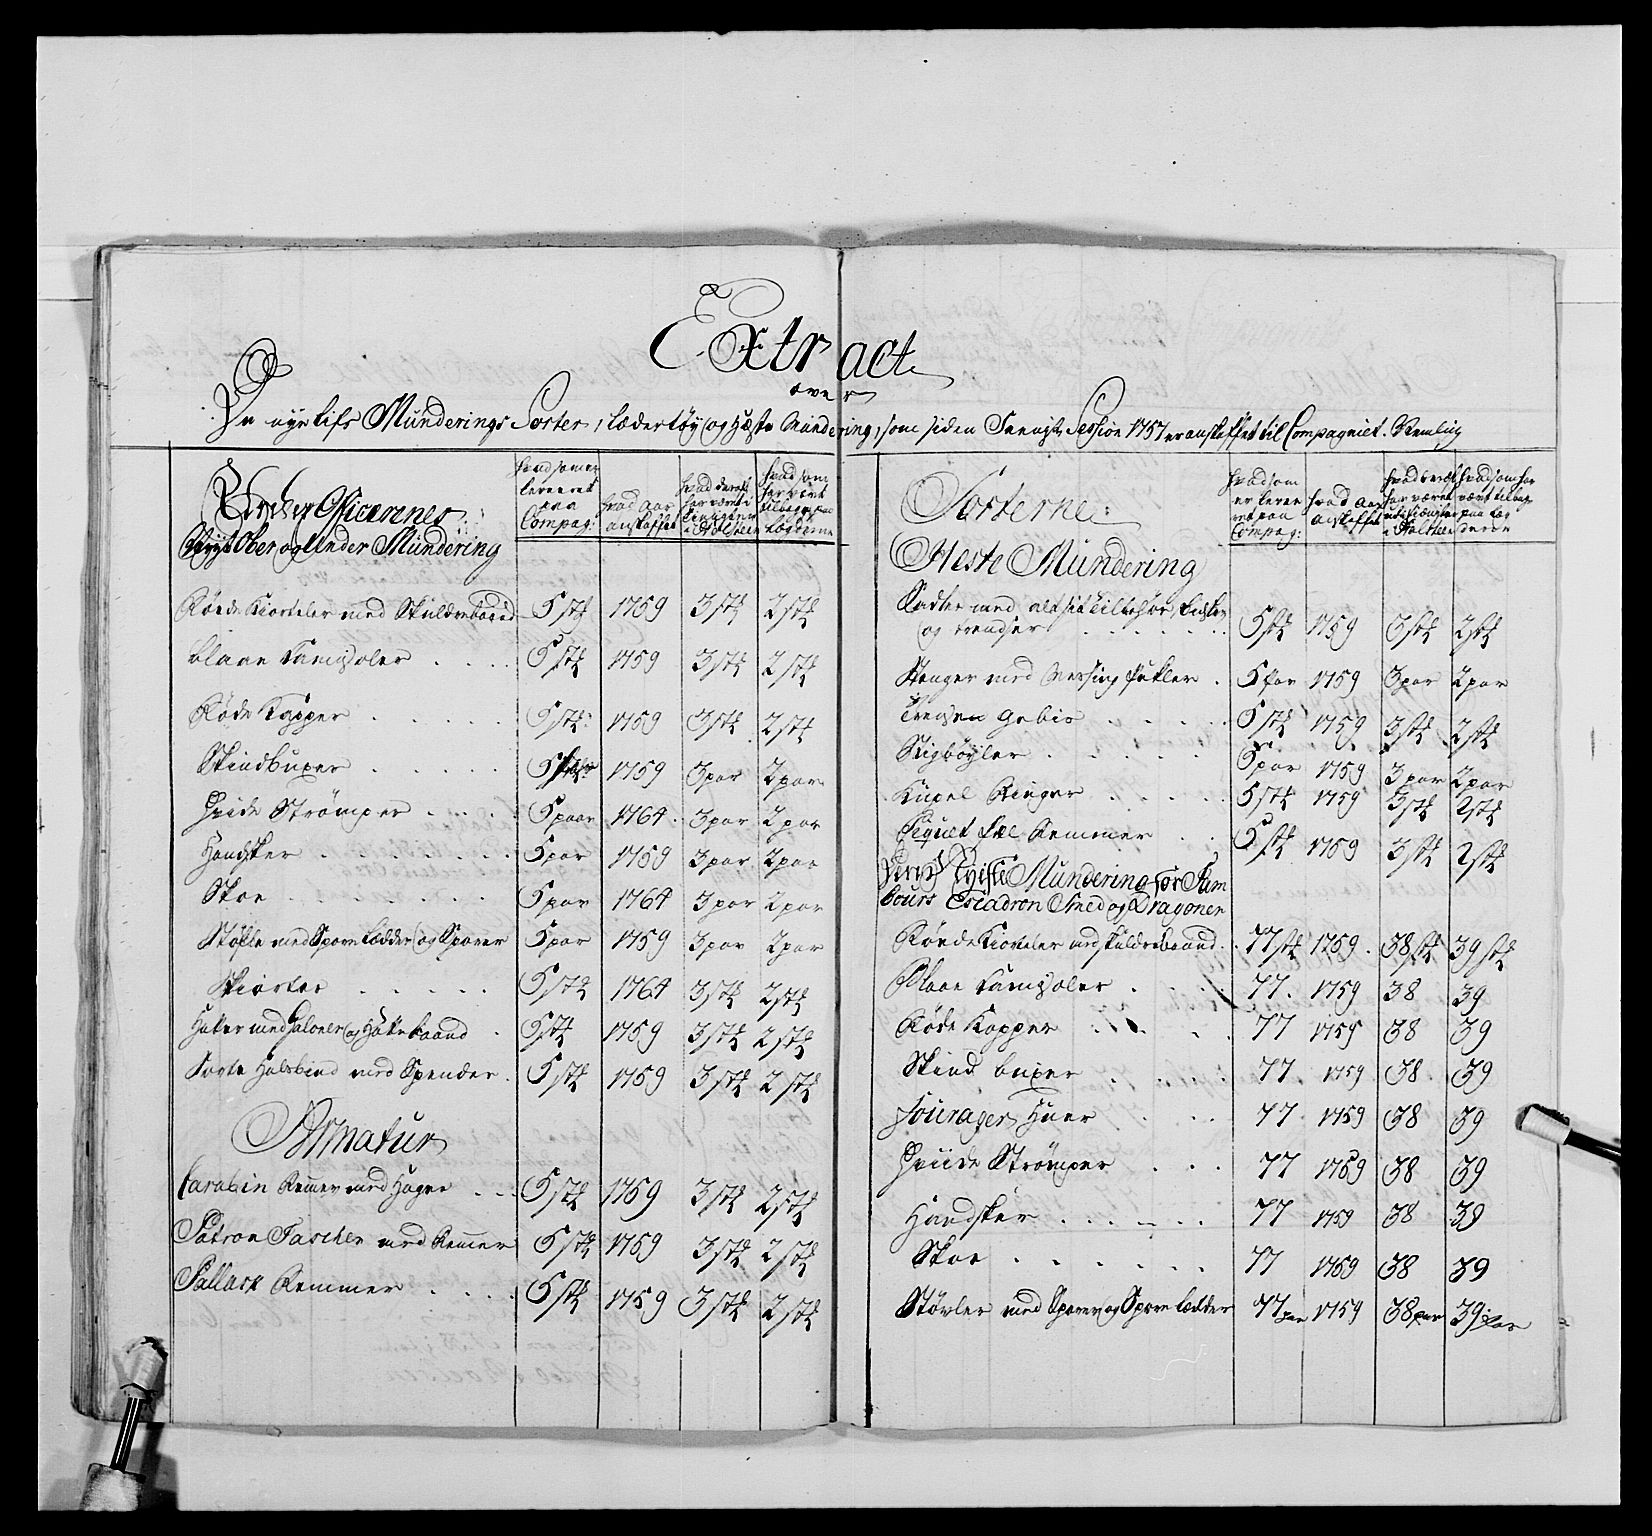 Extract
over
De nye lifs Munderings Sorter, Lædertøy og Hæste Mundering, som siden Seeniste Session 1757 er anskaffet til Compagniet. Nemlig
Under Officerernes
Nyt Ober og Under Mundering
hvad som er
lereeret
paa
Compag:
hvad aar
anskaffet
hvad deraf
har været i
i Holsteen
hvad som
har vært
tilbage paa
Lægderne
Røde Kioreler med Skuldrebaand 5 stk 1759 3 stk 2 stk
blaae Camisoler 5 stk 1759 3 stk 2 stk
Røde Kapper 5 stk: 1759 3 stk 2 stk
Skindbuxer 5 1759 3 par 2 par
Hvide Strømper 5 paar 1764 3 par 2 par
Handsker 5 par 1759 3 par 2 par
Skoe 5 par 1764 3 par 2 par
Støfle med Spore Lædder og Sporer 5 par 1759 3 par 2 par
Skiorter 5 stk 1764 3 stk 2 stk
Hatter med galoner og Hattebaand 5 stk 1759 3 stk 2 stk
Sorte Halsbind med Spender 5 stk 1759 3 stk 2 stk
Armatur
Carabin Remer med Hager 5 stk 1759 3 stk 2 stk
Patron Tascher med Remer 5 stk 1759 3 stk 2 stk
Pallask Remmer 5 stk 1759 3 stk 2 stk
Sorterne
hvad som
er lever
ret paa
Compag:
hvad aar
anskaffet
hvad deraf
har været
i Holsteen
hvad som har
vært tilbage
paa Læg
derne
Heste Mundering
Sadler med alt sit tilbehør,
og trendser 5 stk 1759 3 stk 2 stk
Stenger med Messing Pukler 5 par 1759 3 par 2 par
Trensen Gebis 5 stk 1759 3 stk 2 stk
Stigbøyler 5 par 1759 3 par 2 par
Kupel Ringer 5 stk 1759 3 stk 2 stk
Piquet Pæl Remmer 5 stk 1759 3 stk 2 stk
Mundering for Tam
bours Escadron Smed og Dragoner
Røde Kioreler med Skuldrebaand 77 stk 1759 38 stk 39 stk
Blaae Camisoler 77 1759 38 39
Røde Kapper 77 1759 38 39
Skind buxer 77 1759 38 39
Fourager Huer 77 1759 38 39
Hviide Strømper 77 1759 38 39
Handsker 77 1759 38 39
Skoe 77 1759 38 39
Støvler med Sporer og Spore Lædder 77 par 1759 38 par 39 par